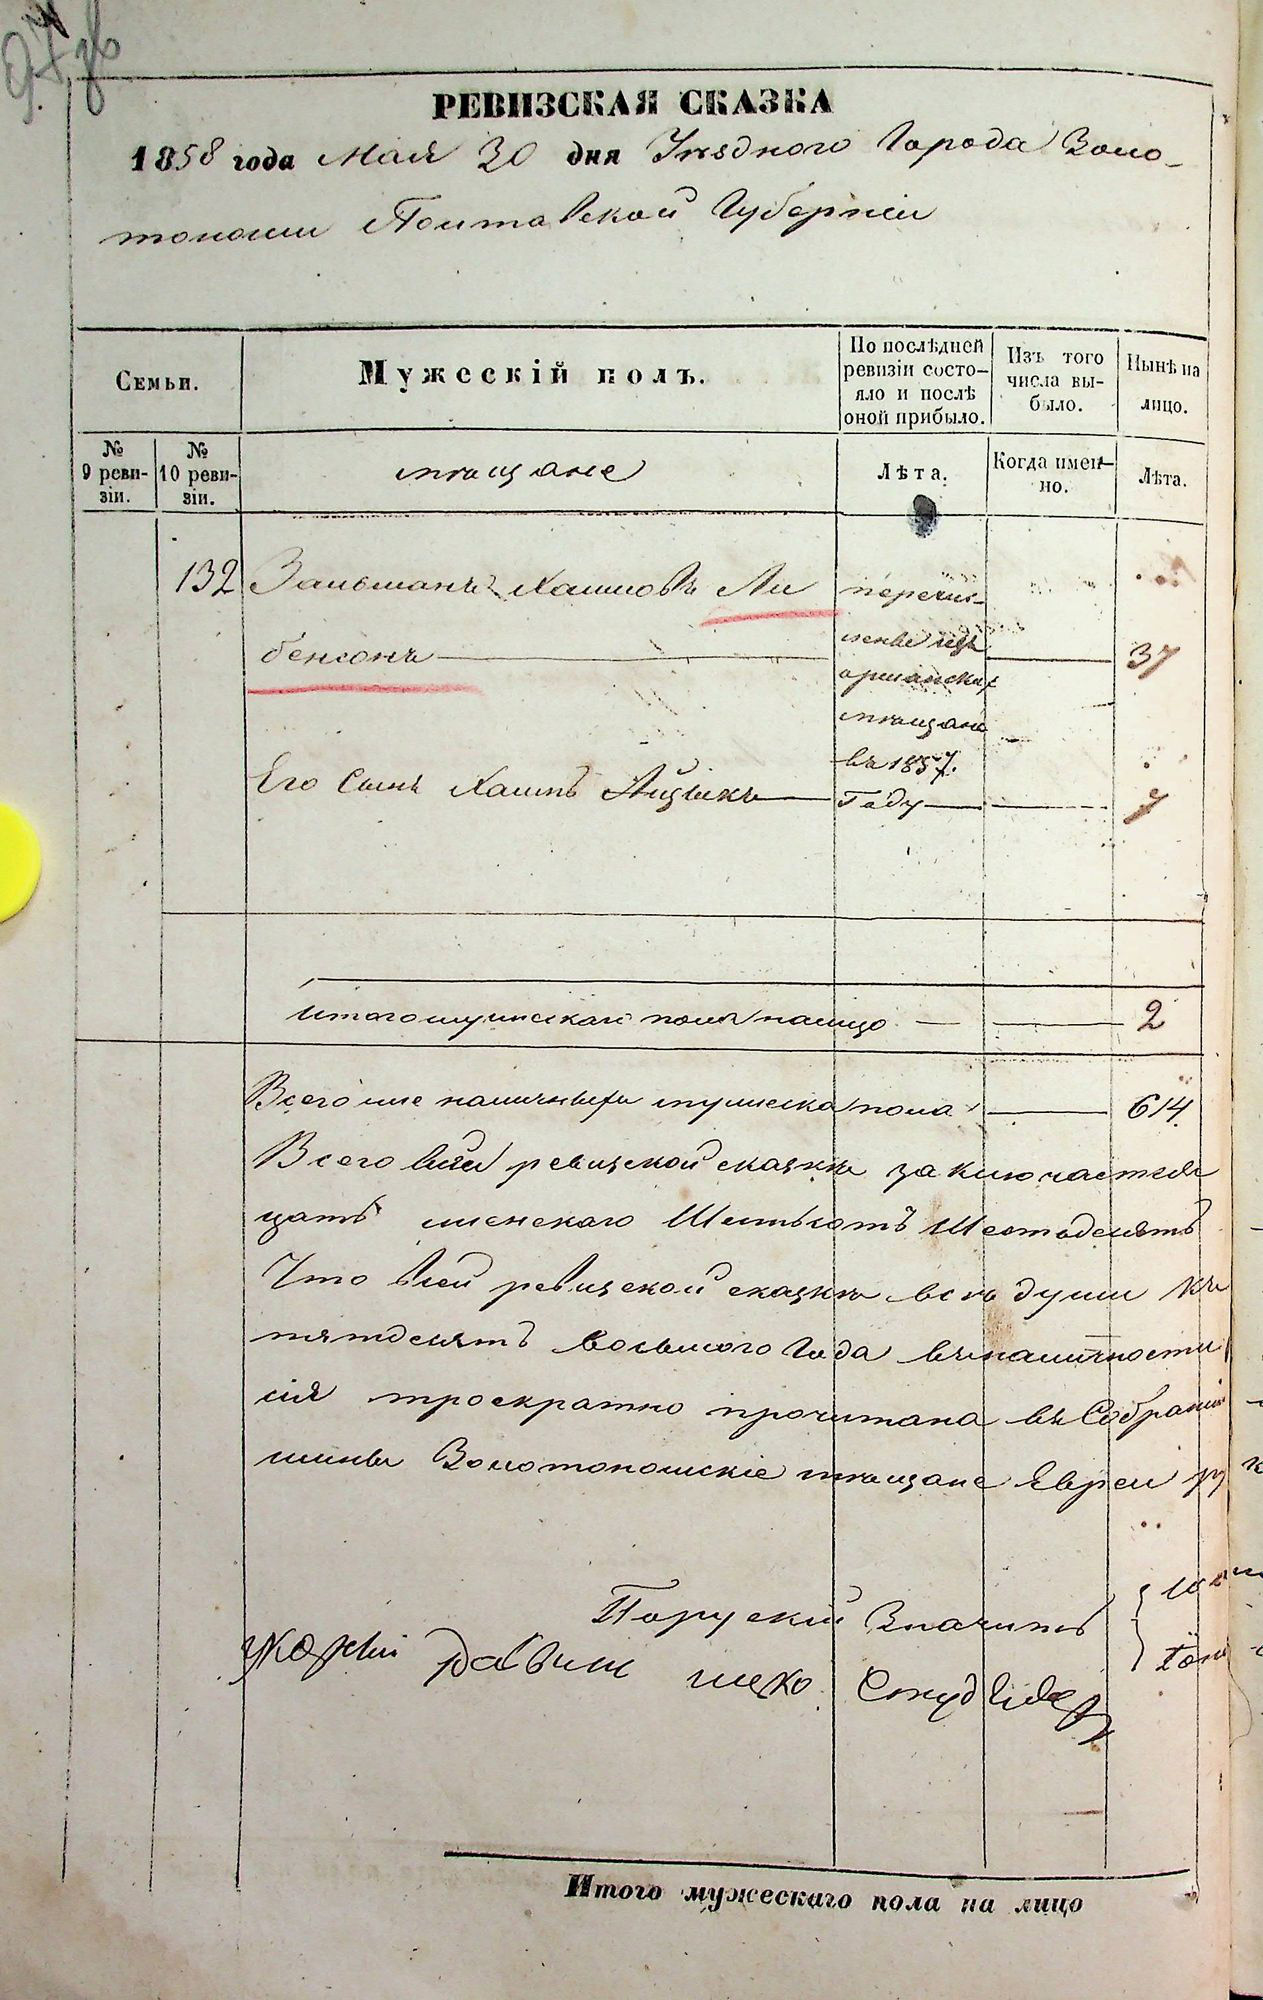 РЕВИЗСКАЯ СКАЗКА
1858 года Мая 30 дня Уѣзднаго Города Золо-
тоноши Полтавской Губерніи
Семьи.
Мужескій полъ.
По послѣдней ревизіи состо-
яло и послѣ оной прибыло.
Изъ того числа вы-
было.
Нынѣ на лицо.
№ 9 реви-
зіи.
№ 10 реви-
зіи.
мѣщане
Лѣта.
Когда имен-
но.
Лѣта.
132 Зальманъ Хаимовъ Ли
бензонъ
37
перечис-
лены изъ
оршанскихъ
мѣщанъ
въ 1857.
Году
Его Сынъ Хаимъ Айзикъ
7
Итого мужескаго пола налицо
2
Всего же наличныхъ мужеска пола
614
Всего в сей ревизской сказкѣ заключается
цать женскаго Шестьсотъ Шестьдесятъ
Что в сей ревизской сказкѣ всѣ души къ
пятьдесятъ восьмого Года въ наличности
сія троекратно прочитана въ Собраніи
Золотоношскіе мѣщане Евреи
По руский Значитъ
раввин
Итого мужескаго пола на лицо